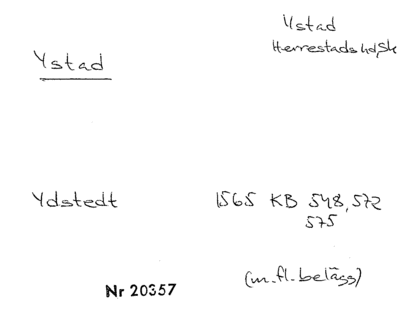 Ystad
Herrestads hd, Sk
Ystad
Ydstedt 1565 KB 548, 572
575
(m.fl. belägg)
Nr 20357